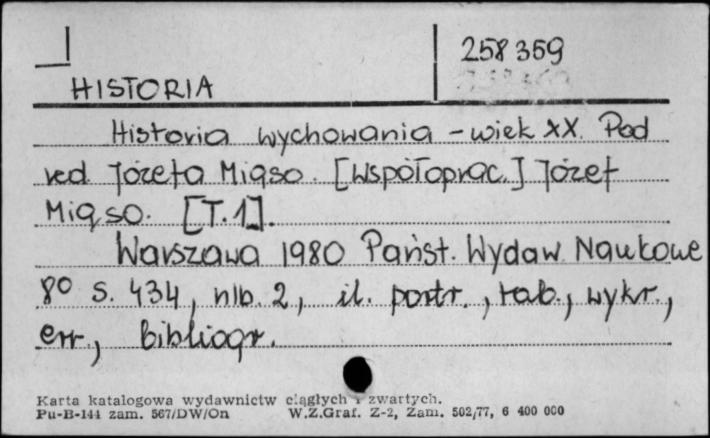 258359
HISTORIA
Historia wychowania - wiek XX. Pod
red. Józefa Miąso. [Współoprac.] Józef
Miąso. [T.1].
Warszawa 1980 Państ. Wydaw. Naukowe
8° s. 434, nlb. 2, il. portr., tab., wykr.,
err., bibliogr.
Karta katalogowa wydawnictw ciągłych i zwartych.
Pu-B-144 zam. 567/DW/On W.Z.Graf. Z-2, Zam. 502/77, 6 400 000